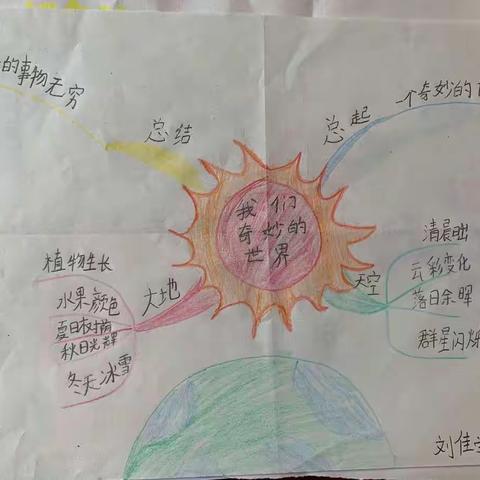 的事物无穷
总结
总起
一个奇妙的
我们
奇妙的
世界
大地
植物生长
水果颜色
夏日
秋日光辉
冬天冰雪
天空
清晨日出
云彩变化
落日余晖
群星闪烁
刘佳